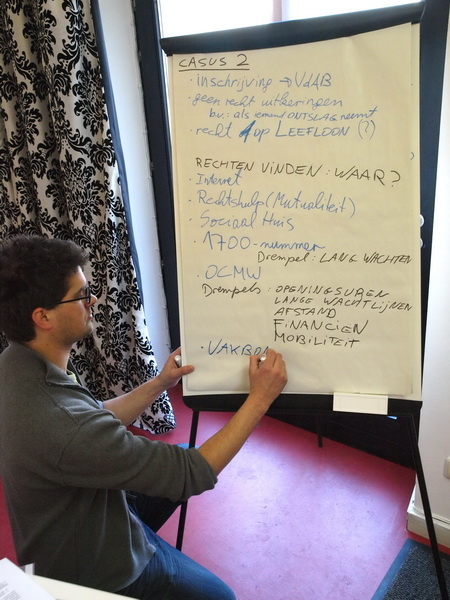 CASUS 2
· Inschrijving → VDAB
· geen recht uitkeringen
bv: als iemand ONTSLAG neemt
· recht op LEEFLOON (?)
RECHTEN VINDEN: WAAR?
· Internet
· Rechtshulp (Mutualiteit)
· Sociaal Huis
· 1700-nummer
Drempel: LANG WACHTEN
· OCMW
Drempels: OPENINGSUREN
LANGE WACHTLIJNEN
AFSTAND
FINANCIEN
MOBILITEIT
· VAKBON